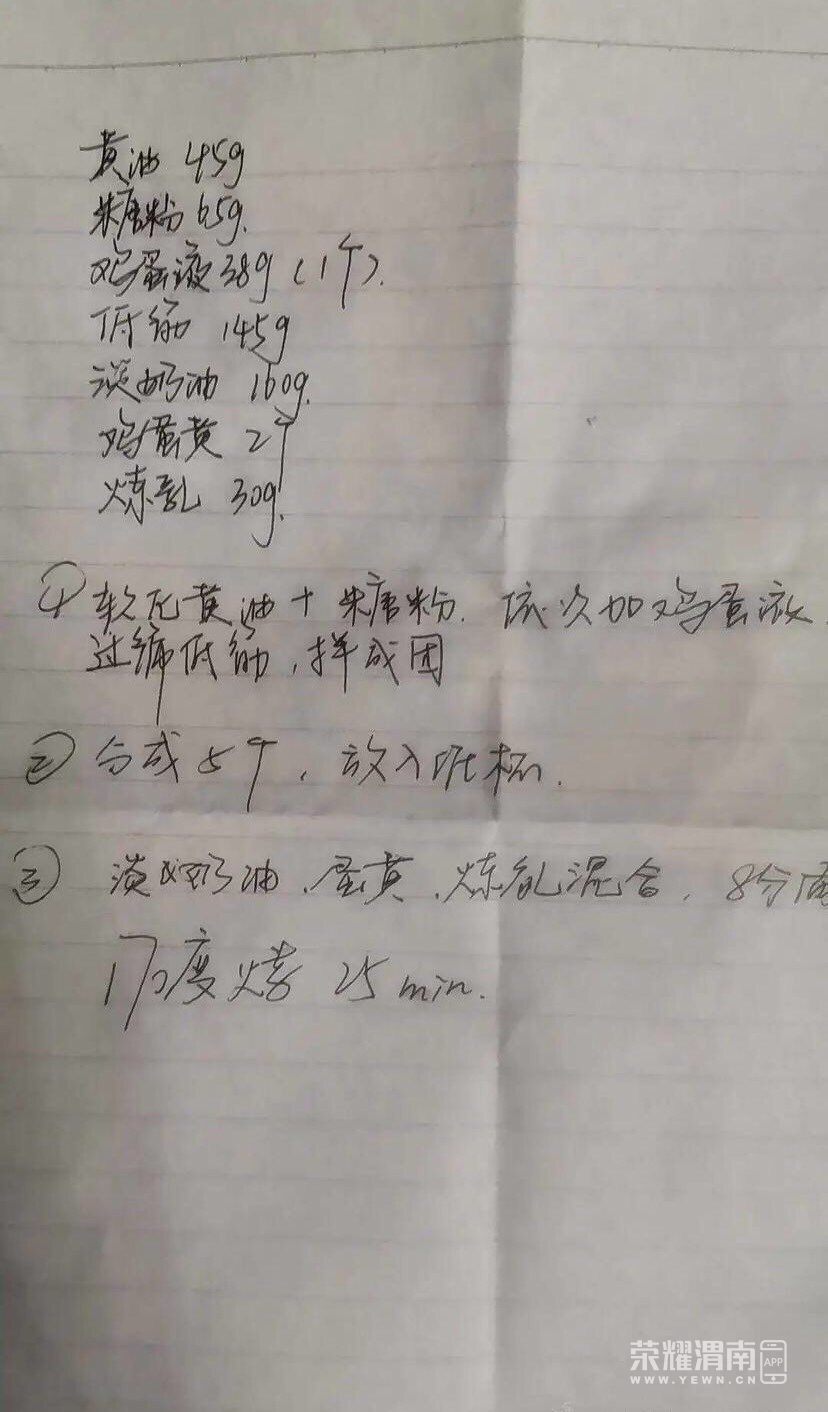 黄油 45g
糖粉 65g.
鸡蛋液 38g (1个).
低筋 145g
淡奶油 160g.
鸡蛋黄 2个
炼乳 30g.
① 软化黄油 + 糖粉. 依次加鸡蛋液.
过筛低筋, 拌成团
② 分成5个, 放入 杯.
③ 淡奶油、蛋黄、炼乳混合. 8分
170度烤 25 min.
荣耀渭南 APP
WWW.YEWN.CN